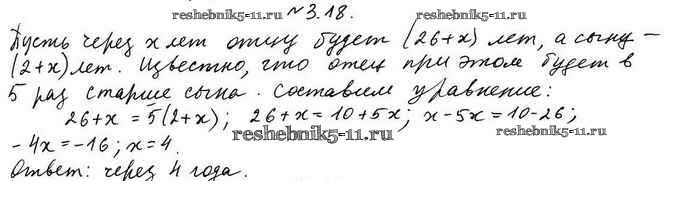 reshebnik5-11.ru
№3.18.
Пусть через x лет отцу будет (26+x) лет, а сыну –
(2+x) лет. Известно, что отец при этом будет в
5 раз старше сына. Составим уравнение:
26+x = 5(2+x); 26+x = 10+5x; x-5x=10-26;
-4x=-16; x=4.
reshebnik5-11.ru
Ответ: через 4 года.
reshebnik5-11.ru